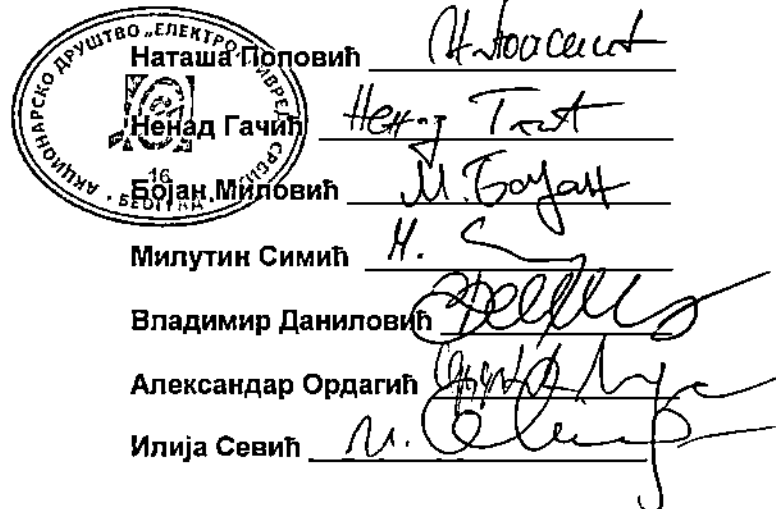 АКЦИОНАРСКО ДРУШТВО „ЕЛЕКТРОПРИВРЕДА СРБИЈЕ"
16
БЕОГРАД
Наташа Поповић
Ненад Гачић
Бојан Миловић
М. Бојан
Милутин Симић
Владимир Даниловић
Александар Ордагић
Илија Севић